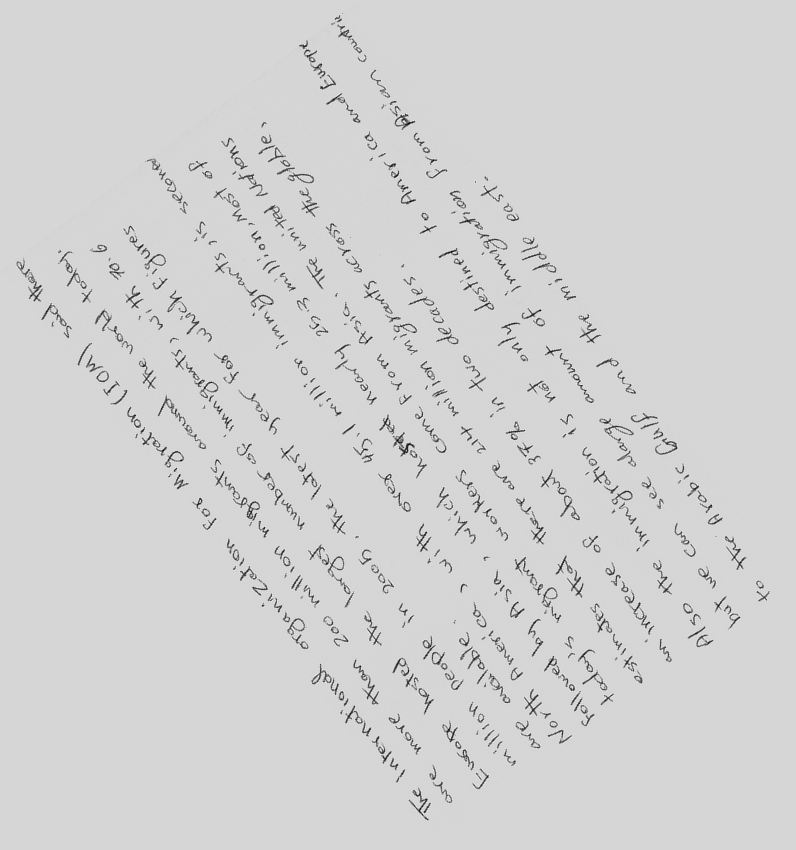 The international organization for Migration (IOM) said there
are more than 200 million migrants around the world today.
Europe hosted the largest number of immigrants, with 70.6
million people in 2005, the latest year for which figures
are available.
North America, with over 45.1 million immigrants, is second
followed by Asia, which hosted nearly 25.3 million. Most of
today's migrant workers come from Asia. The united Nations
estimates that there are 214 million migrants across the globle,
an increase of about 37% in two decades.
Also the immigration is not only destined to America and Europe
but we can see alarge amount of immigration from Asian countrie
to the Arabic Gulf and the middle east.